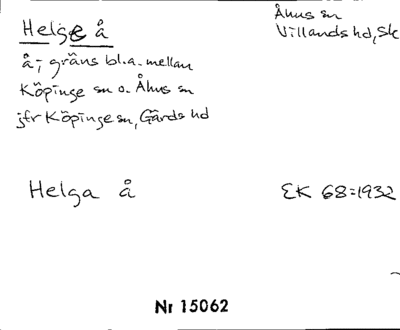 Helge å
Åhus sn
Villands hd, Sk
å; gräns bl.a. mellan
Köpinge sn o. Åhus sn
jfr Köpinge sn, Gärds hd
Helga å
EK 68:1932
Nr 15062